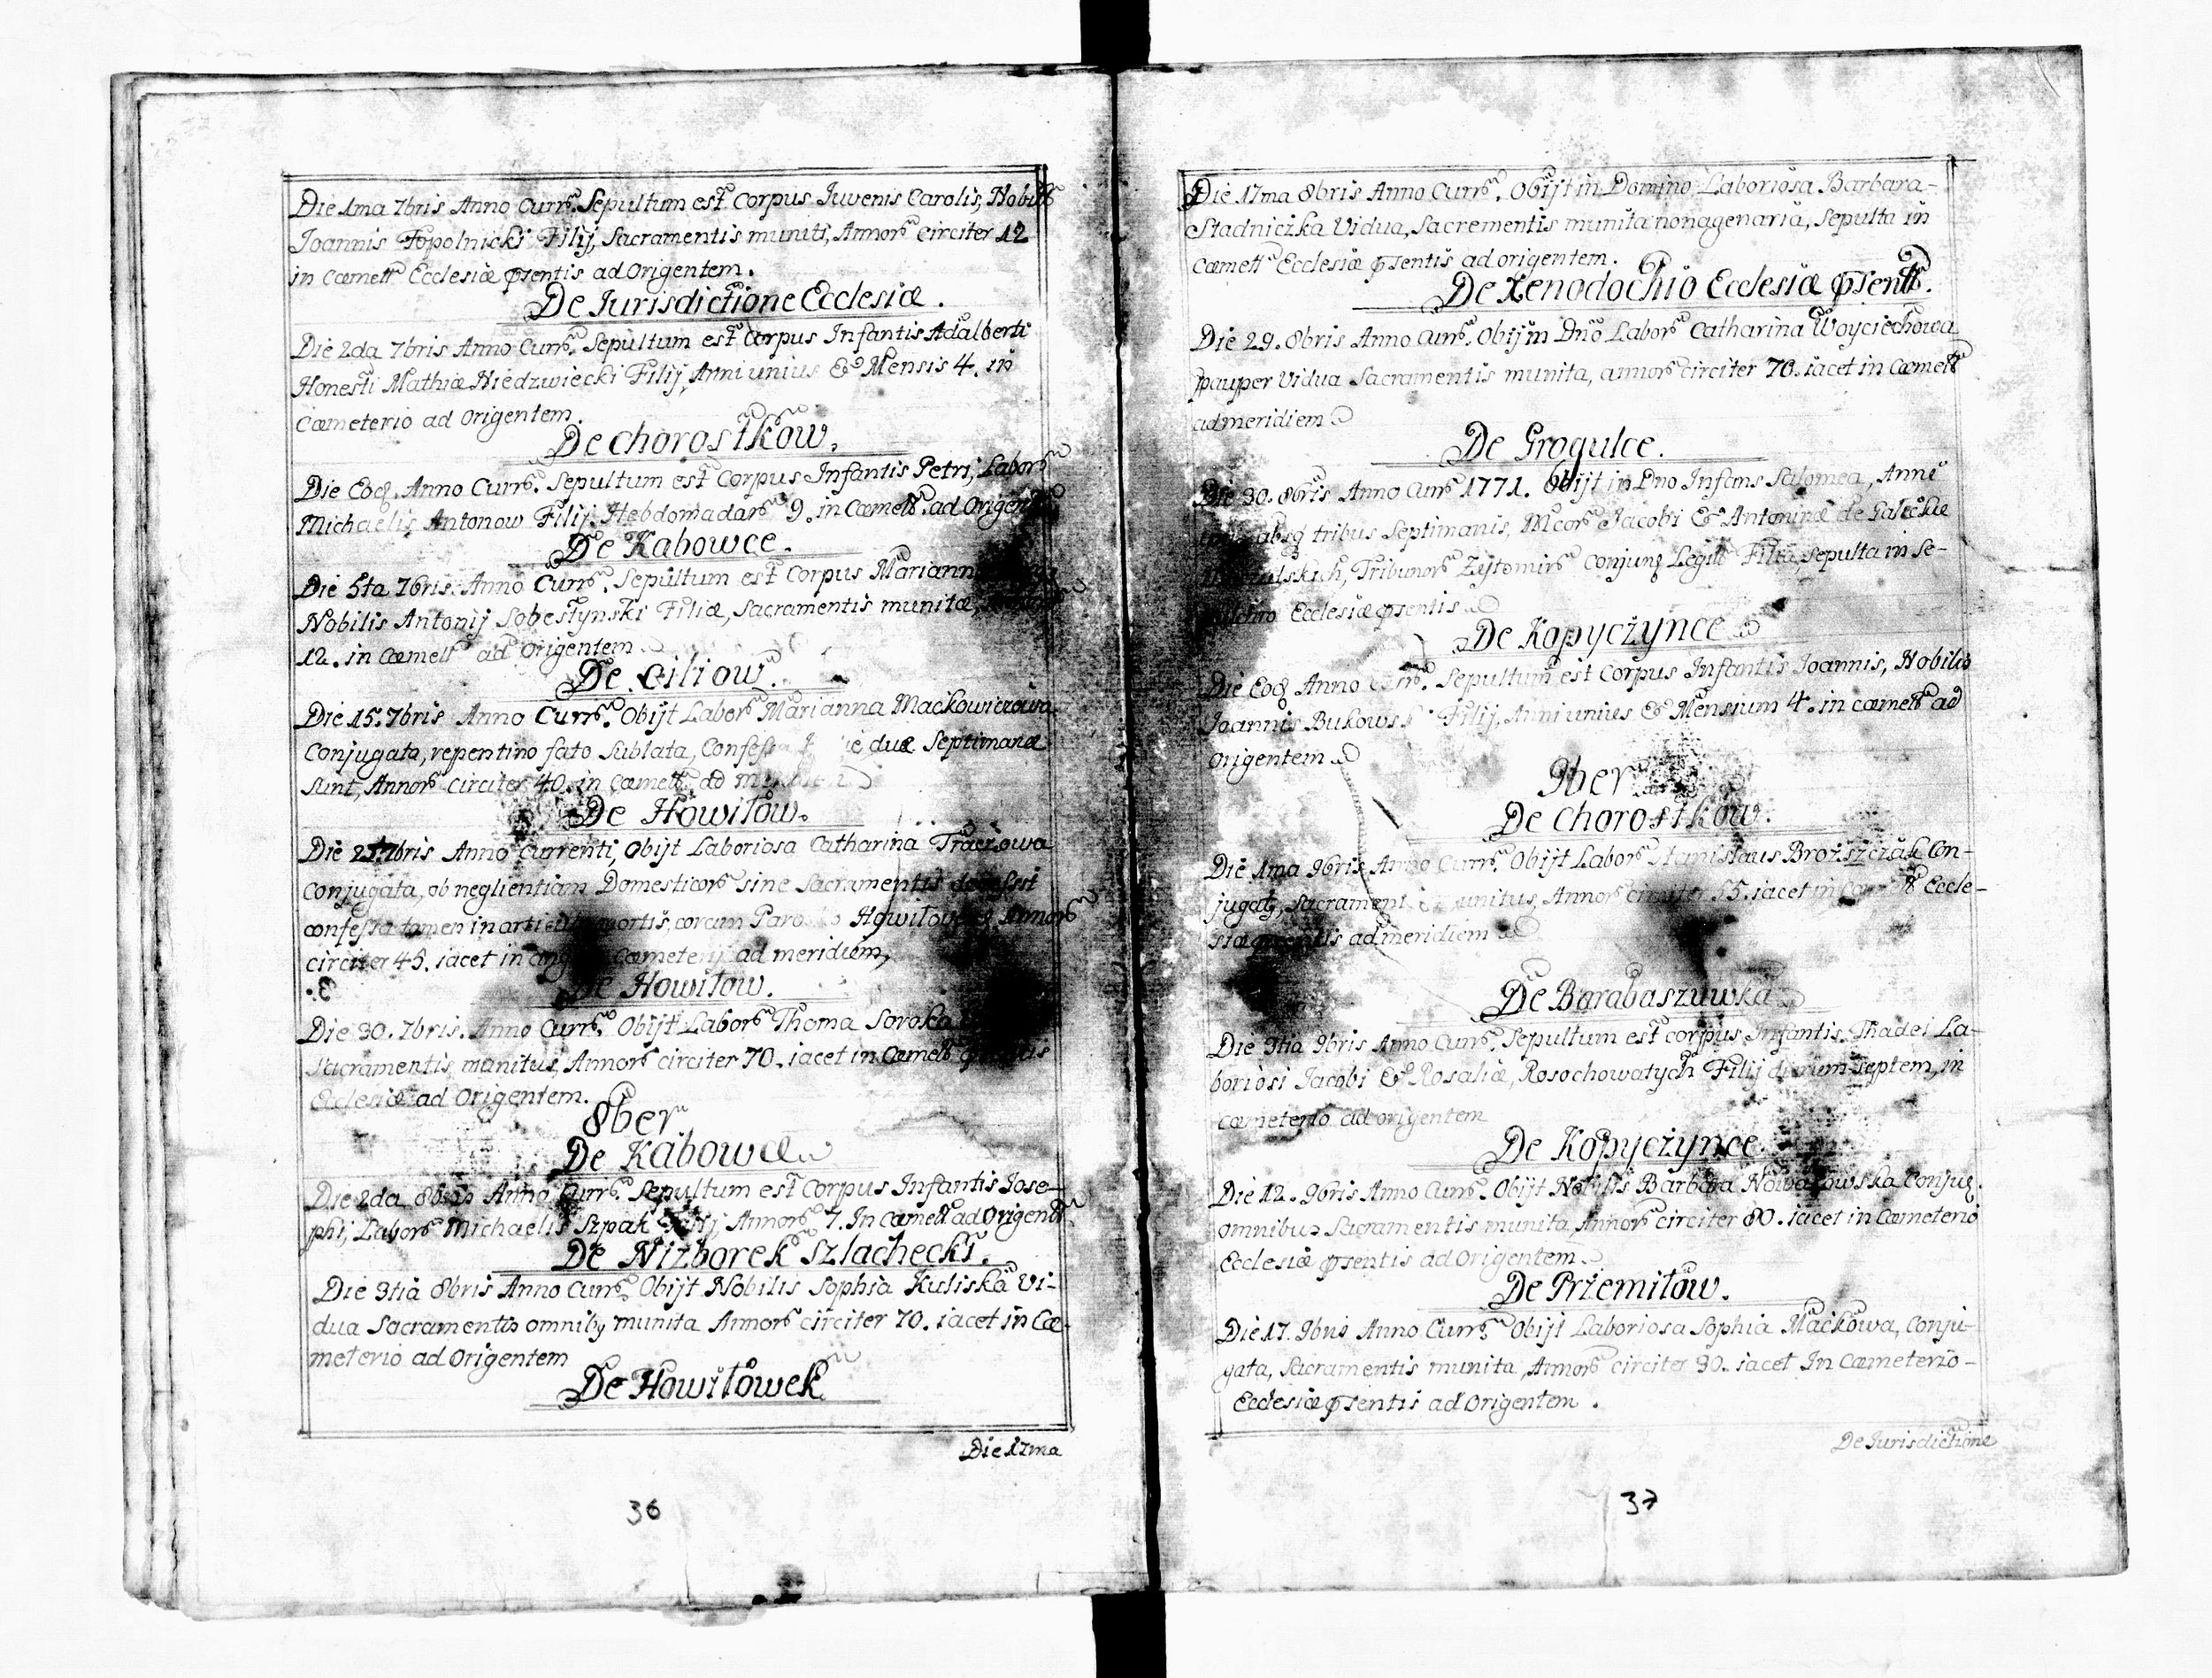 Die 1ma 7bris Anno Curr. Sepultum est Corpus Iuvenis Carolis, Nobilis
Joannis Topolnicki Filij, Sacramentis muniti, Annor circiter 12
in Cœmett Ecclesiæ psentis ad Origentem.
De Iurisdictione Ecclesiæ.
Die 2da 7bris Anno Curr. Sepultum est Corpus Infantis Adalberti
Honesti Mathiæ Niedzwiecki Filij, Anni unius & Mensis 4. in
Cœmeterio ad Origentem.
De Chorostkow.
Die Eod. Anno Curr. Sepultum est Corpus Infantis Petri, Labor
Michaelis Antonow Filij. Hebdomadar 9. in Cœmett. ad Origen
De Kabowce.
Die 5ta 7bris. Anno Curr. Sepultum est Corpus Mariann
Nobilis Antonij Sobestynski Filiæ, Sacramentis munitæ,
12. in Cœmett ad Origentem
De Ciliow.
Die 15. 7bris Anno Curr. Obijt Labor Marianna Mackowiczowa
Conjugata, repentino fato sublata, Confessa duæ Septimanæ
sunt, Annor circiter 40. in Cœmett. ad
De Howiłow.
Die 7bris Anno Currenti, Obijt Laboriosa Catharina Traczowa
Conjugata, ob neglientiam Domesticor sine Sacramentis
confessa tamen in mortis, coram Annor
circiter 45. iacet in Cœmeterij ad meridiem,
De Howiłow.
Die 30. 7bris. Anno Curr. Obijt Labor Thoma Soroka
Sacramentis munitus, Annor circiter 70. iacet in Cœmett psentis
Ecclesiæ ad Origentem.
8ber
De Kabowce
Die 2da 8bris Anno Curr. Sepultum est Corpus Infantis Jose-
phi, Labor Michaelis Szpak Filij, Annor 7. In Cœmett ad Origent
De Nizborek Szlachecki.
Die 3tiа 8bris Anno Curr. Obijt Nobilis Sophia Kuliska Vi-
dua Sacramentis omnibq munita Annor circiter 70. iacet in Cœ-
meterio ad Origentem
De Howiłowek
Die 17ma
36
Die 17ma 8bris Anno Curr. Obijt in Domino Laboriosa Barbara-
Stadniczka Vidua, Sacrementis munita nonagenaria, Sepulta in
Cœmett Ecclesiæ psentis ad origentem.
De Xenodochio Ecclesiæ psentt.
Die 29. 8bris Anno Curr. Obij in Dno Labor Catharina Woyciechowa
pauper Vidua Sacramentis munita, annor circiter 70. iacet in Cœmett
ad meridiem
De Grogulce.
Die 30. 8bris Anno Curr 1771. Obijt in Dno Infans Salomea, Anni
absq tribus Septimanis, Mcor Jacobi & Antoninæ de
Tribunor Zytomir Conjung Legitt Filia, Sepulta in Se-
Ecclesiæ psentis
De Kopyczynce
Die Eod. Anno Curr. Sepultum est Corpus Infantis Joannis, Nobilis
Joannis Filij, Anni unius & Mensium 4. in cœmett ad
Origentem
9ber
De Chorostkow.
Die 1ma 9bris Anno Curr. Obijt Labor Stanislaus Con-
jugatq, Sacrament munitus, Annor circiter 55. iacet in Eccle-
siæ psentis ad meridiem
De Barabaszuwka
Die 3tia 9bris Anno Curr. Sepultum est corpus Infantis Thadei La-
boriosi Jacobi & Rosaliæ, Rosochowatych Filij dierum septem, in
cœmeterio ad origentem
De Kopyczynce.
Die 12. 9bris Anno Curr. Obijt Nobilis Barbara Conjug.
omnibus Sacramentis munita, Annor circiter 80. iacet in Cœmeterio
Ecclesiæ psentis ad Origentem.
De Przemiłow.
Die 17. 9bris Anno Curr. Obijt Laboriosa Sophia Mackowa, Conju-
gata, Sacramentis munita, Annor circiter 30. iacet In Cœmeterio-
Ecclesiæ psentis ad Origentem.
De Jurisdictione
37